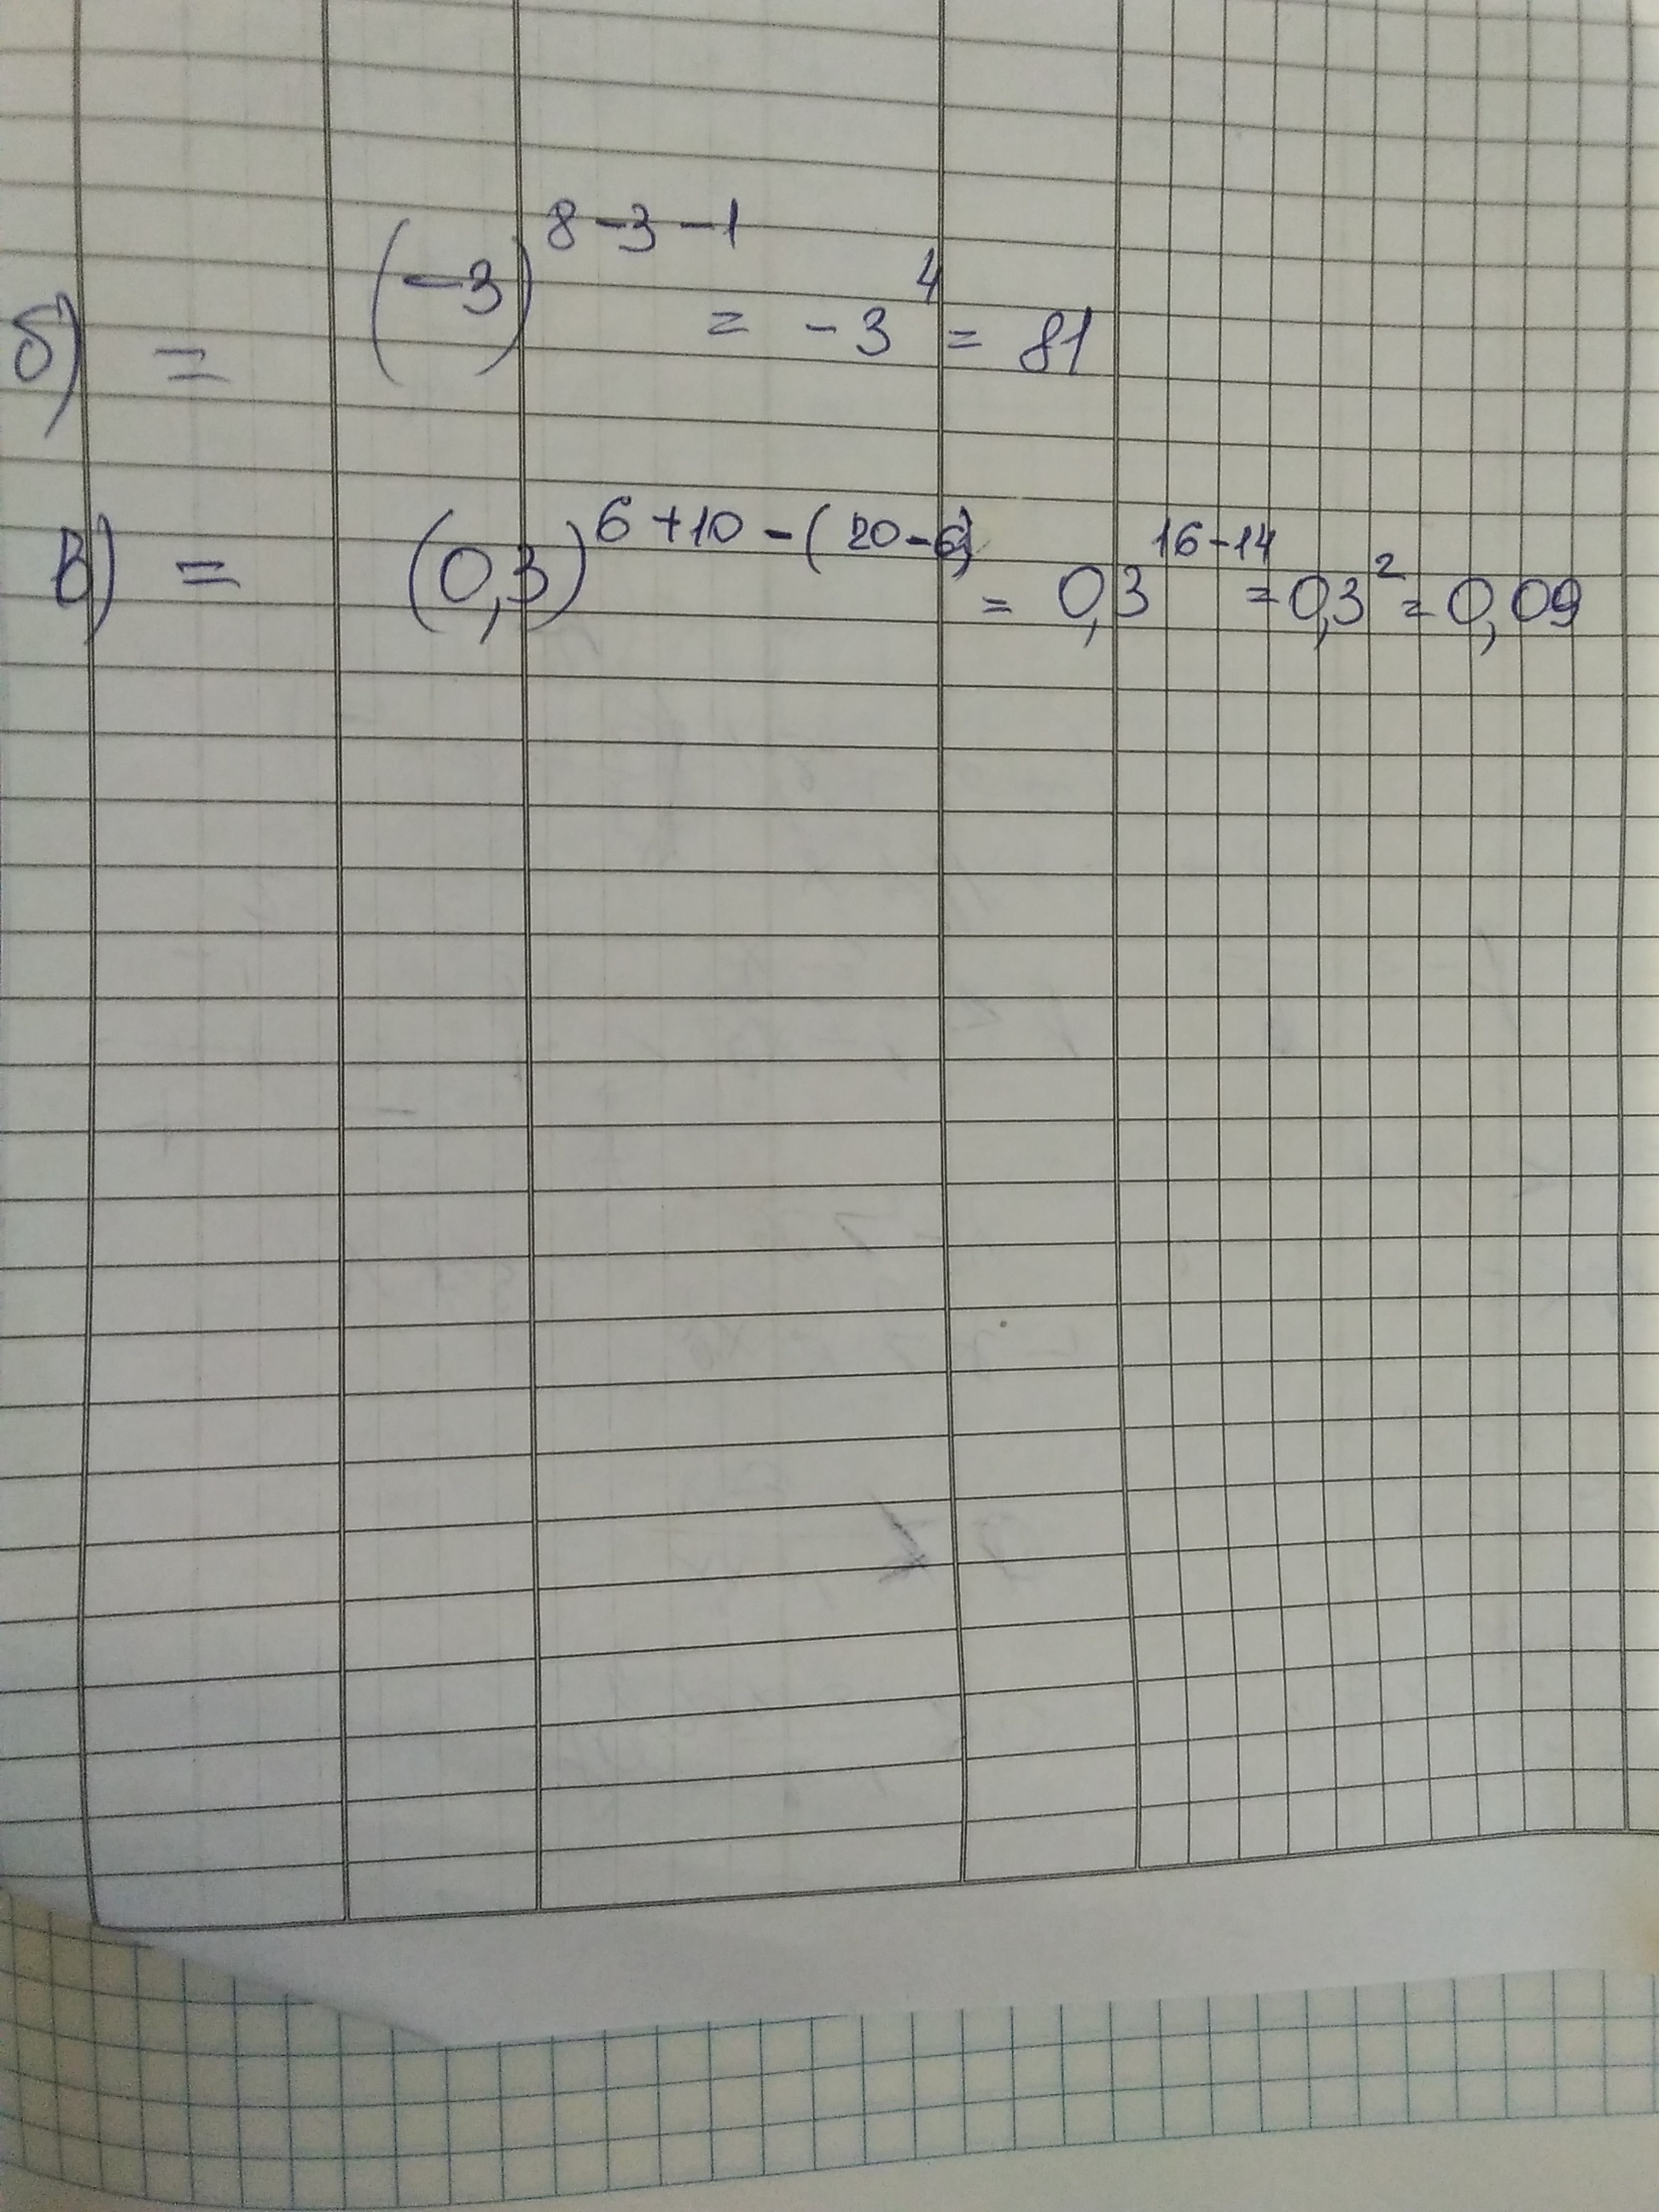 б) = (-3)^{8-3-1} = -3^4 = 81
в) = (0,3)^{6+10-(20-6)} = 0,3^{16-14} = 0,3^2 = 0,09